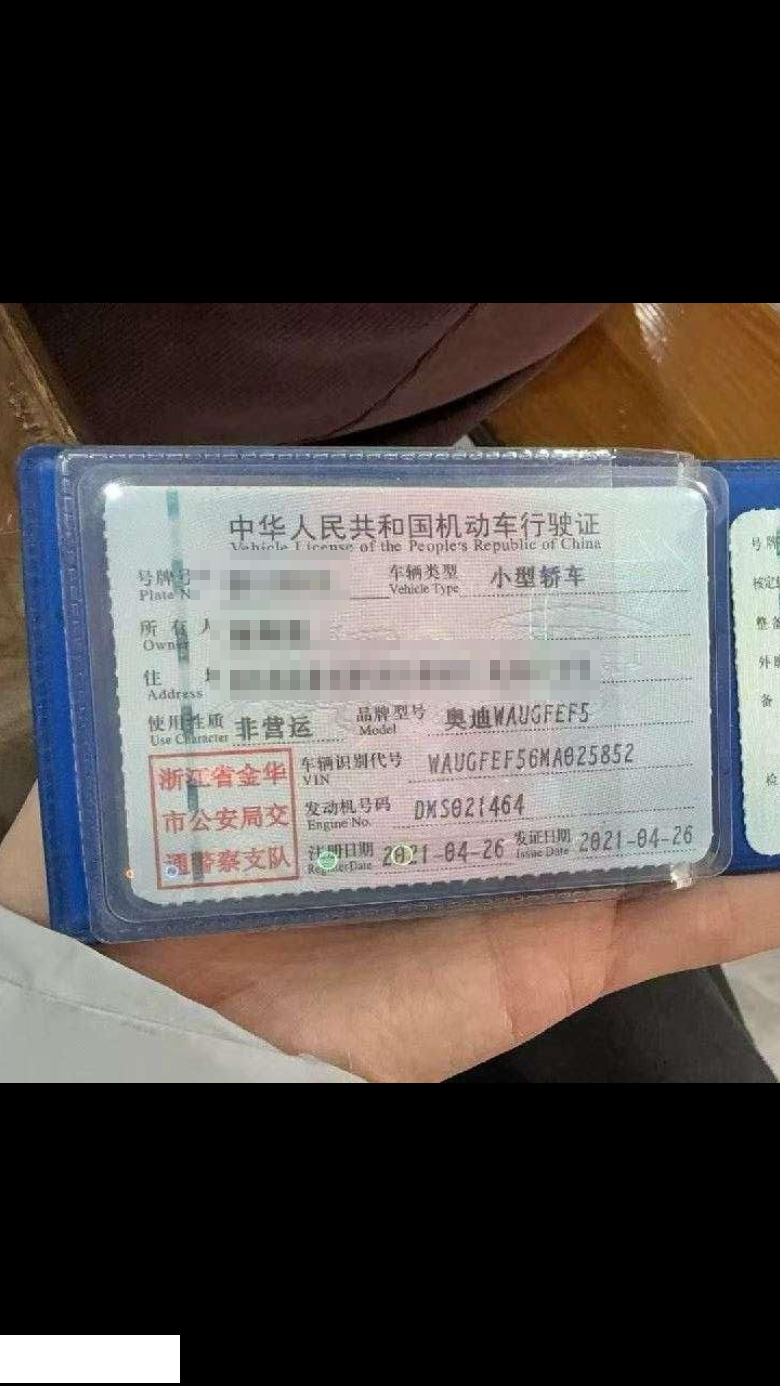 中华人民共和国机动车行驶证
Vehicle License of the People's Republic of China
号牌号
Plate N
车辆类型
Vehicle Type
小型轿车
所有人
Owner
住
Address
使用性质
Use Character
非营运
品牌型号
Model
奥迪WAUGFEF5
浙江省金华
市公安局交
通警察支队
车辆识别代号
VIN
WAUGFEF56MA025852
发动机号码
Engine No.
DMS021464
注册日期
Register Date
2021-04-26
发证日期
Issue Date
2021-04-26
号牌
核定
整备
外廓
备
检